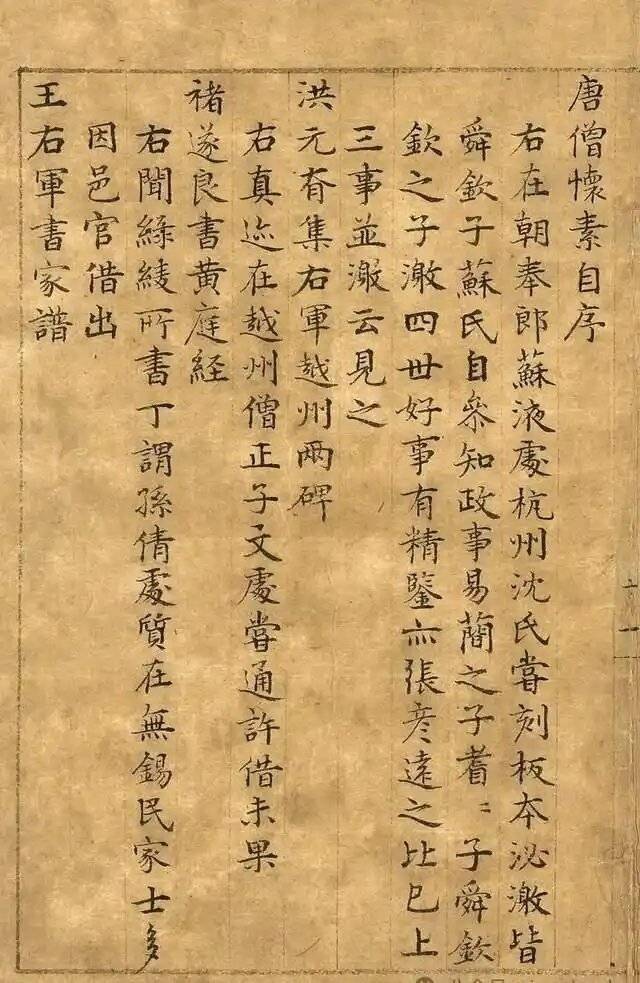 唐僧懷素自序
右在朝奉郎蘇液處杭州沈氏嘗刻板本泌激皆
舜欽子蘇氏自叅知政事易簡之子耆〻子舜欽
欽之子激四世好事有精鑒亦張彥遠之比已上
三事並激云見之
洪元眘集右軍越州兩碑
右真迹在越州僧正子文處嘗通許借未果
褚遂良書黃庭經
右聞綠綾所書丁謂孫倩處質在無錫民家士多
因邑官借出
王右軍書家譜